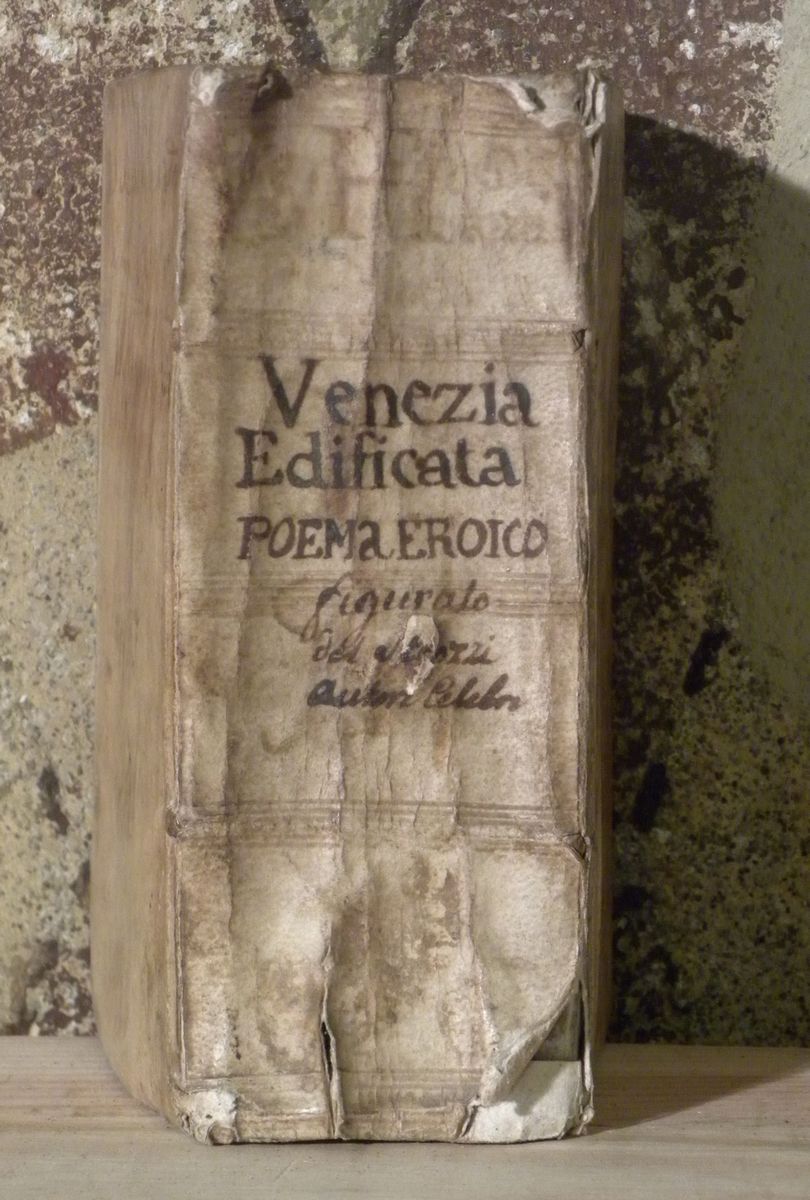 Venezia
Edificata
POEMa EROICO
figurato
del Strozzi
Autori Celebri